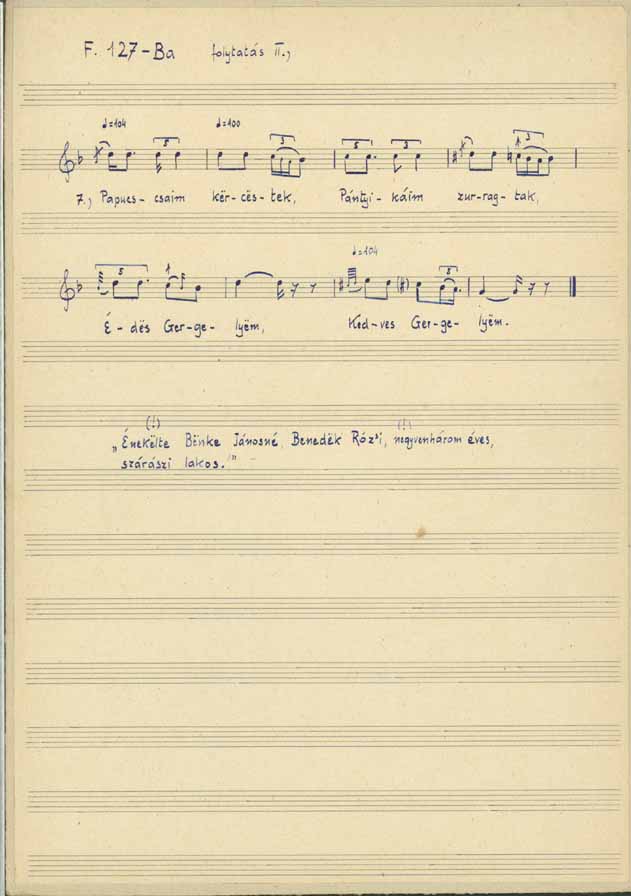 F. 127-Ba folytatás II.,
♩=104 ♩=100
5 3 5 3 3
7., Papucs- csaim kër-cës-tek, Pántyi-káim zur-rag-tak,
♩=104
5 3
É-dës Ger-ge-lyëm, Ked-ves Ger-ge-lyëm.
(!) (!)
„Énekëlte Bënke Jánosné, Benedëk Rózsi, negyvenhárom éves,
szárászi lakos."